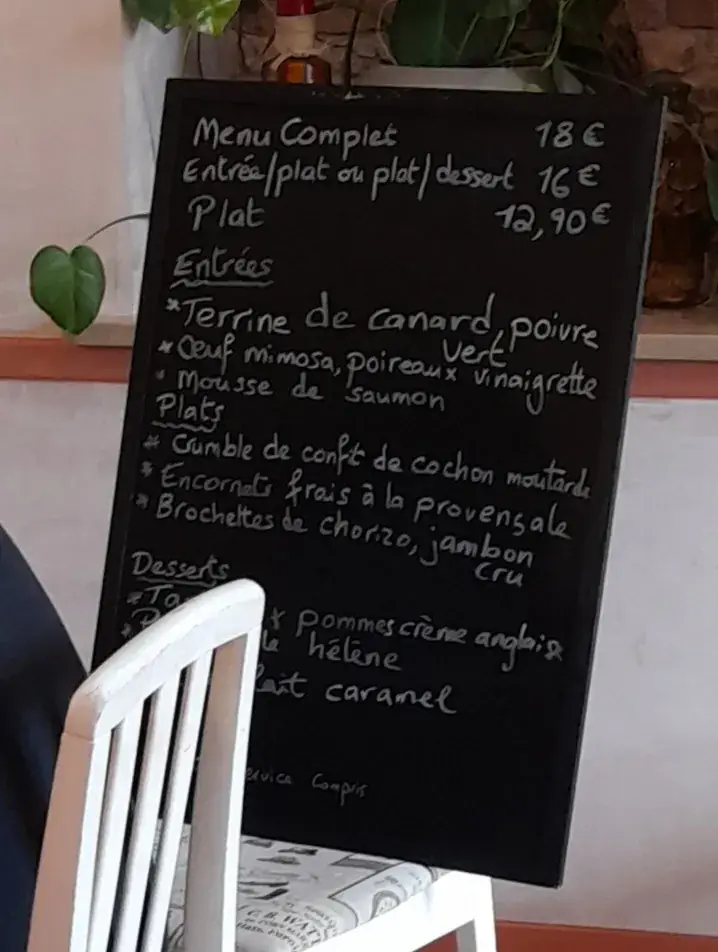 Menu Complet 18€
Entrée/plat ou plat/dessert 16€
Plat 12,90€
Entrées
*Terrine de canard, poivre
vert
*Œuf mimosa, poireaux vinaigrette
* Mousse de saumon
Plats
* Crumble de confit de cochon moutarde
* Encornets frais à la provençale
* Brochettes de chorizo, jambon
cru
Desserts
* pommes crème anglaise
* hélène
caramel
Compris